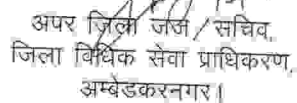 अपर जिला जज / सचिव,
जिला विधिक सेवा प्राधिकरण,
अम्बेडकरनगर।